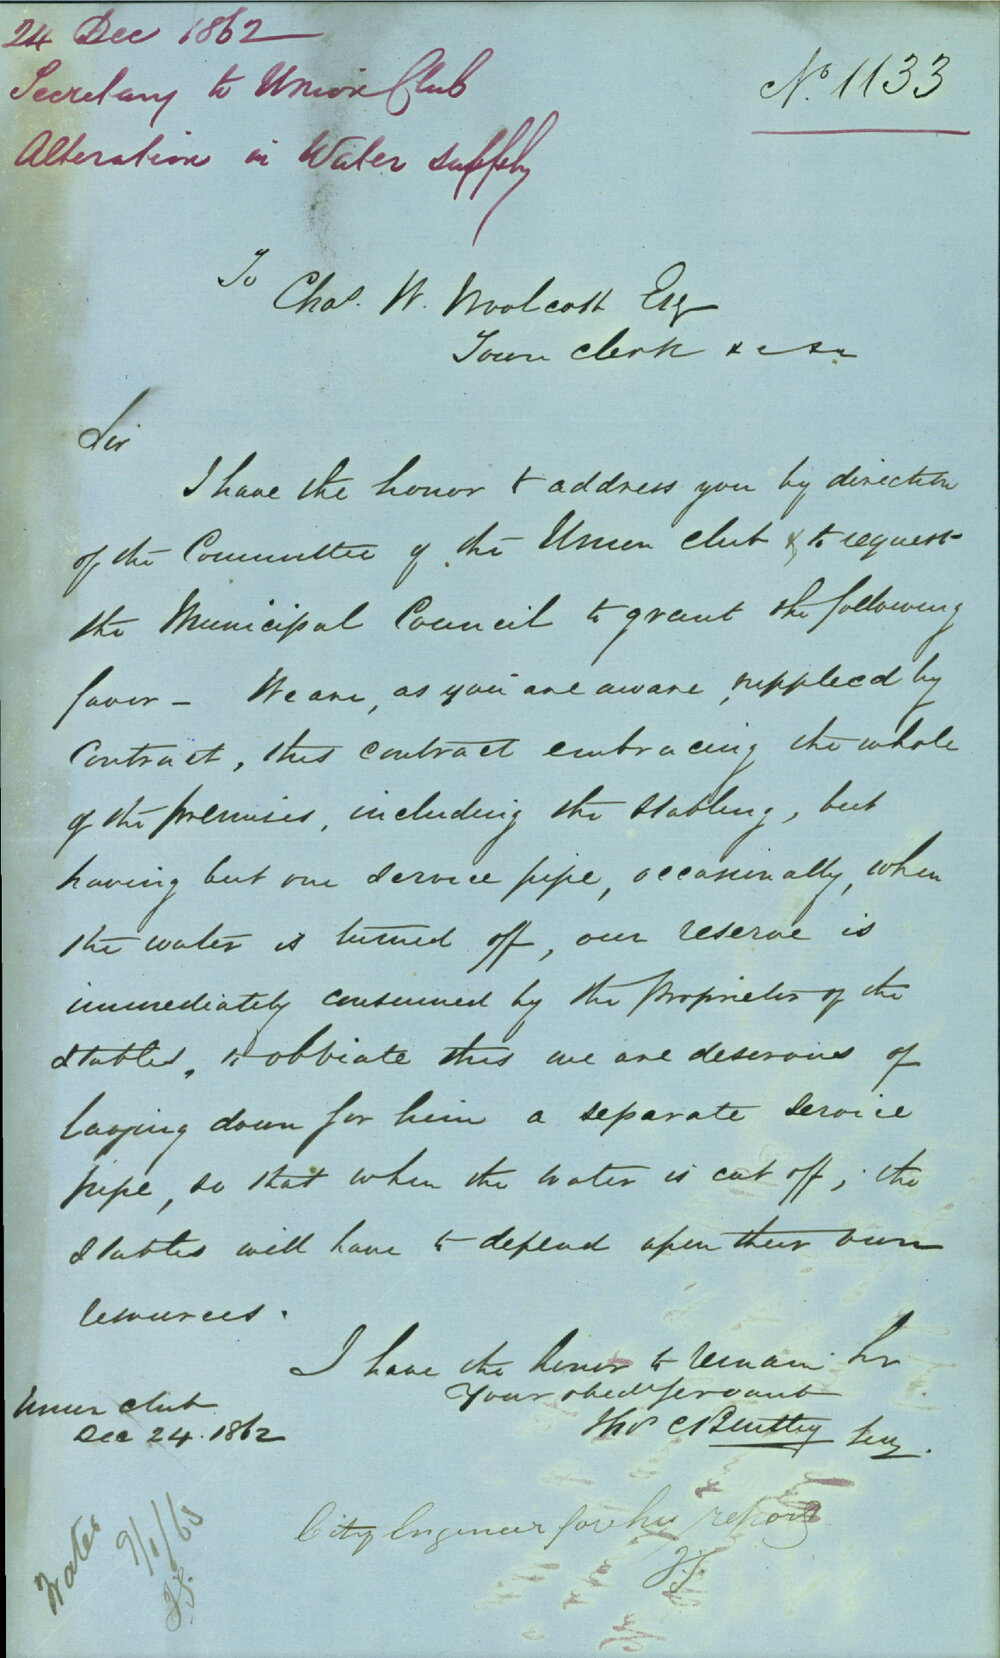 24 Dec 1862
Secretary to Union Club
Alteration in Water supply
No. 1133
To
Chas. W. Woolcott Esq
Town clerk &c &c
Sir
I have the honor to address you by direction
of the Committee of the Union club & to request
the Municipal Council to grant the following
favor - We are, as you are aware, supplied by
Contract, this contract embracing the whole
of the premises, including the stabling, but
having but one service pipe, occasionally, when
the water is turned off, our reserve is
immediately consumed by the proprietor of the
stables, to obbiate this we are desirous of
laying down for him a separate service
pipe, so that when the water is cut off, the
stables will have to depend upon their own
resources.
I have the honor to remain Sir
Your obedt servant
Thos C Bentley Secy.
Union club
Dec 24. 1862
City Engineer for his report
Water
9/1/63